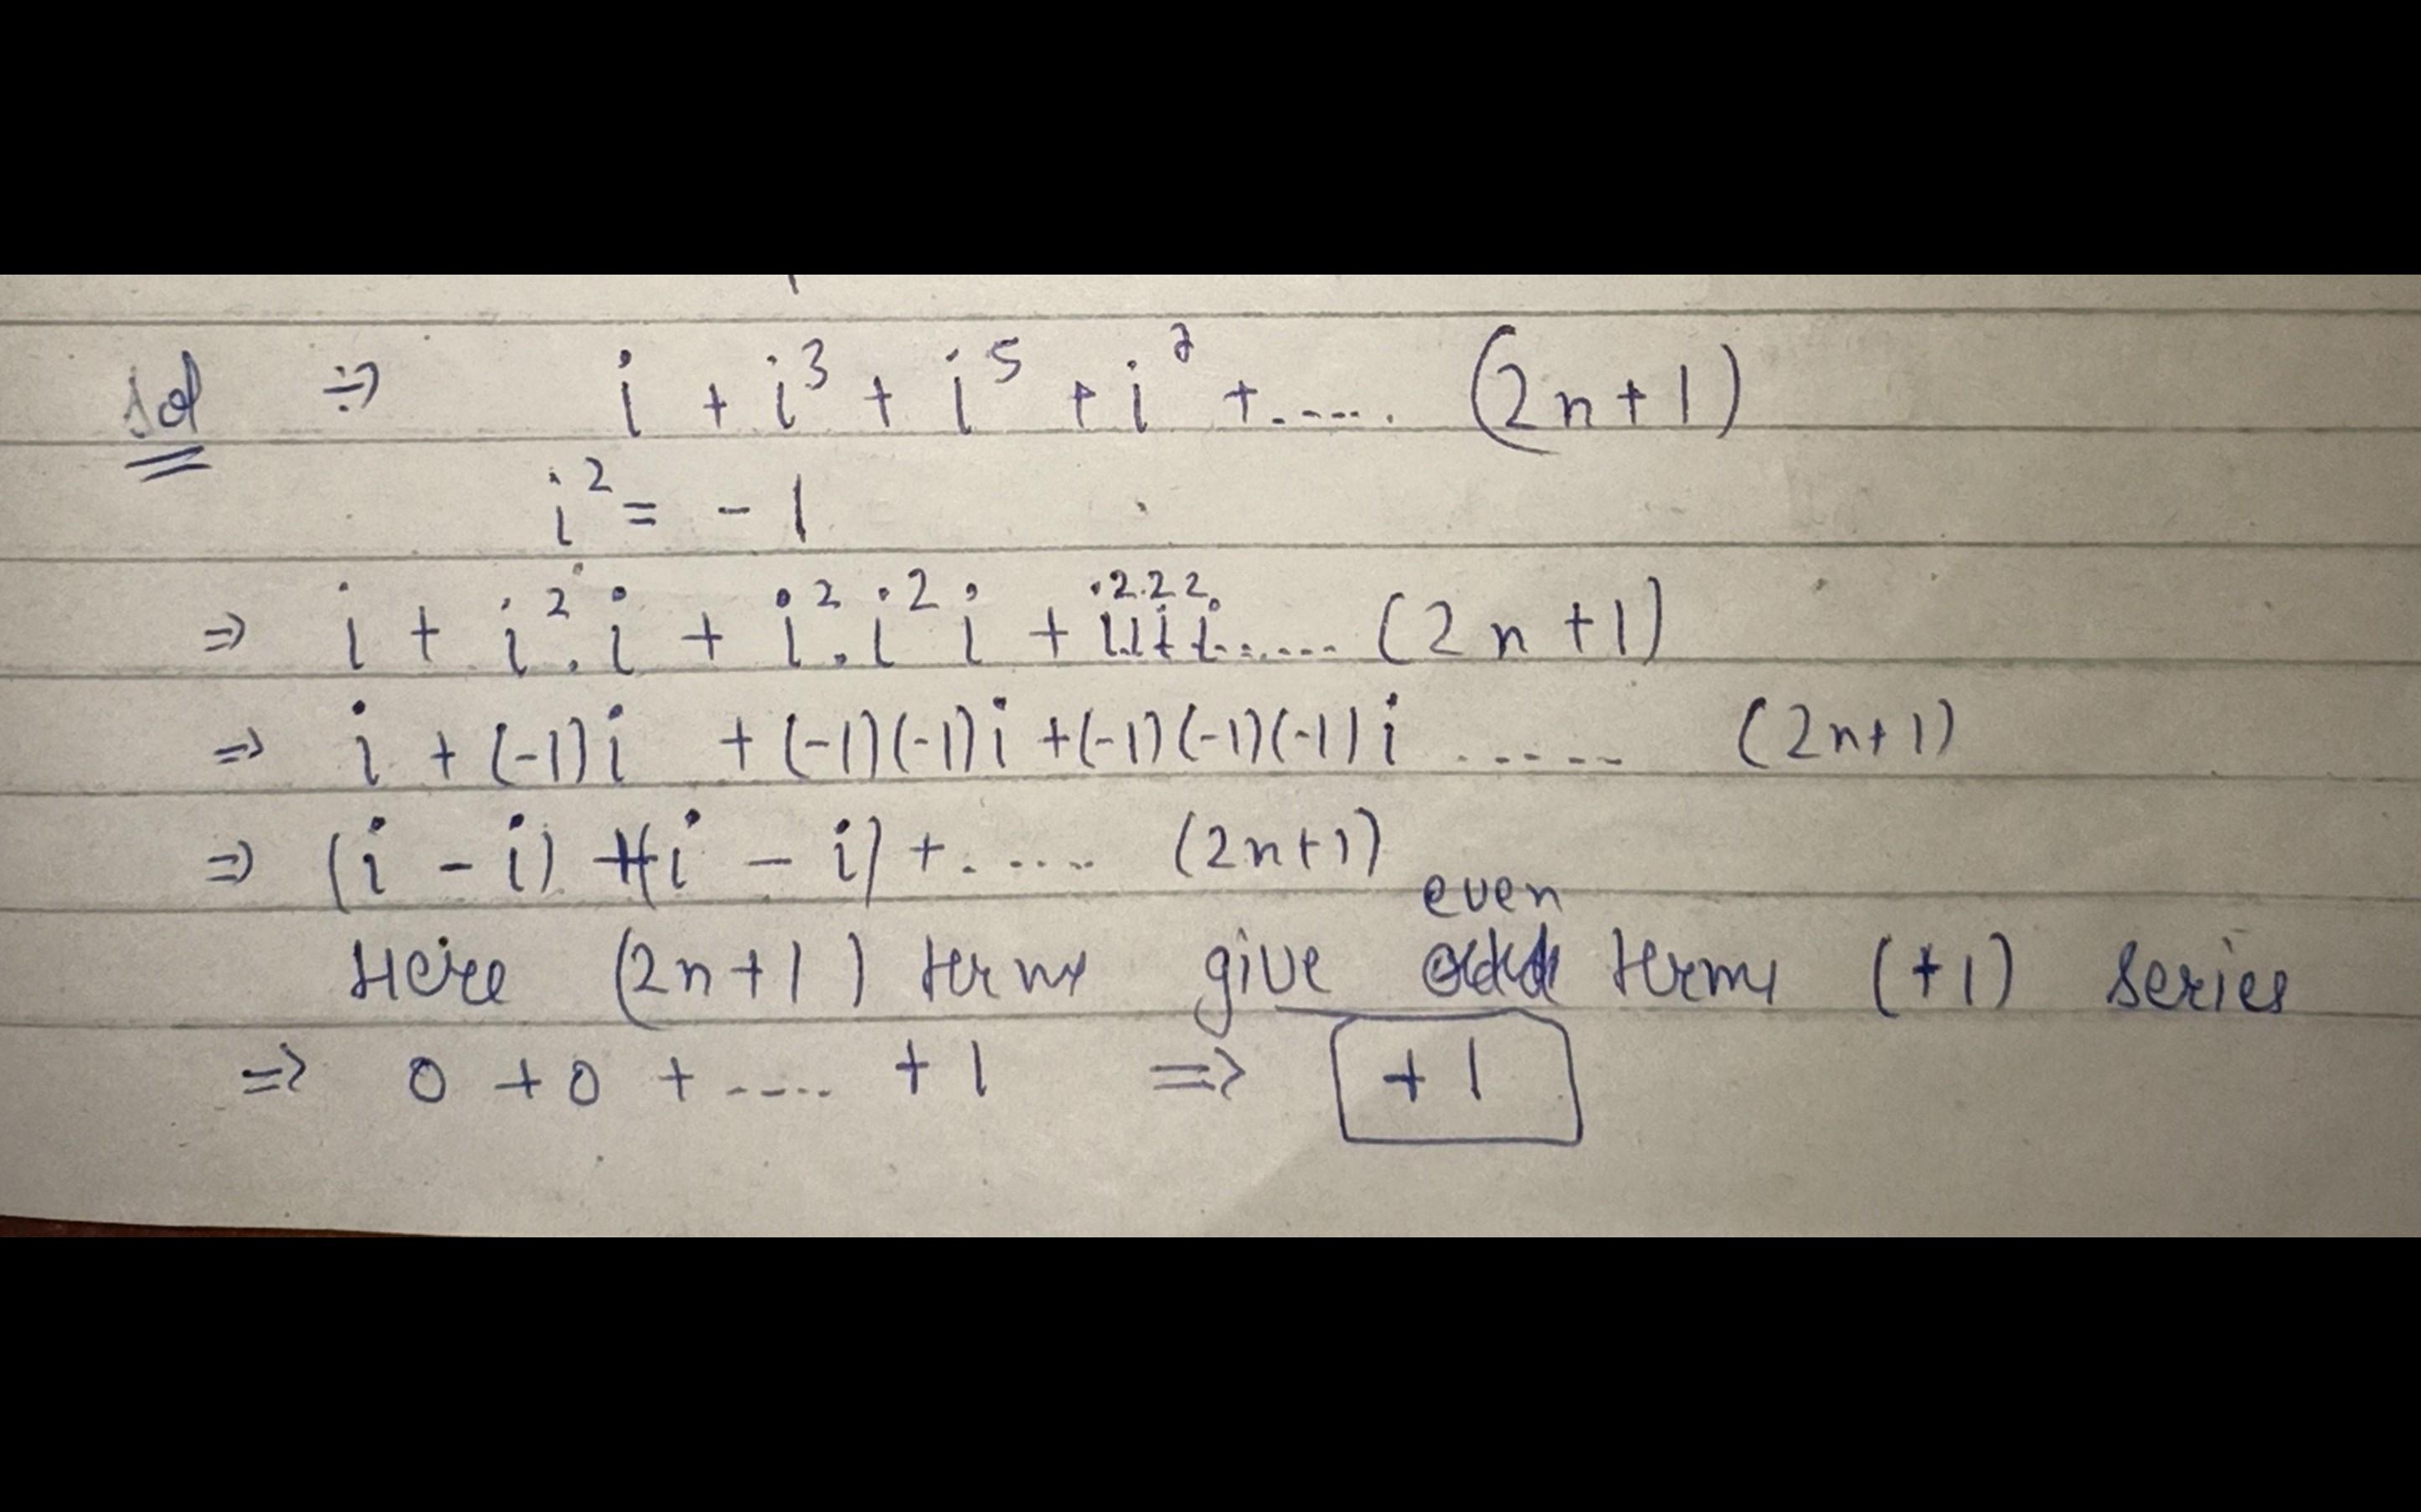 Sol ÷) i + i³ + i⁵ + i⁷ + ..... (2n+1)
i² = - 1
⇒ i + i².i + i².i² i + i².i².i².i ...... (2n+1)
⇒ i + (-1)i + (-1)(-1)i + (-1)(-1)(-1)i ...... (2n+1)
⇒ (i - i) + (i - i) + ..... (2n+1)
even
Here (2n+1) terms give terms (+1) series
⇒ 0 + 0 + ..... + 1 ⇒ +1